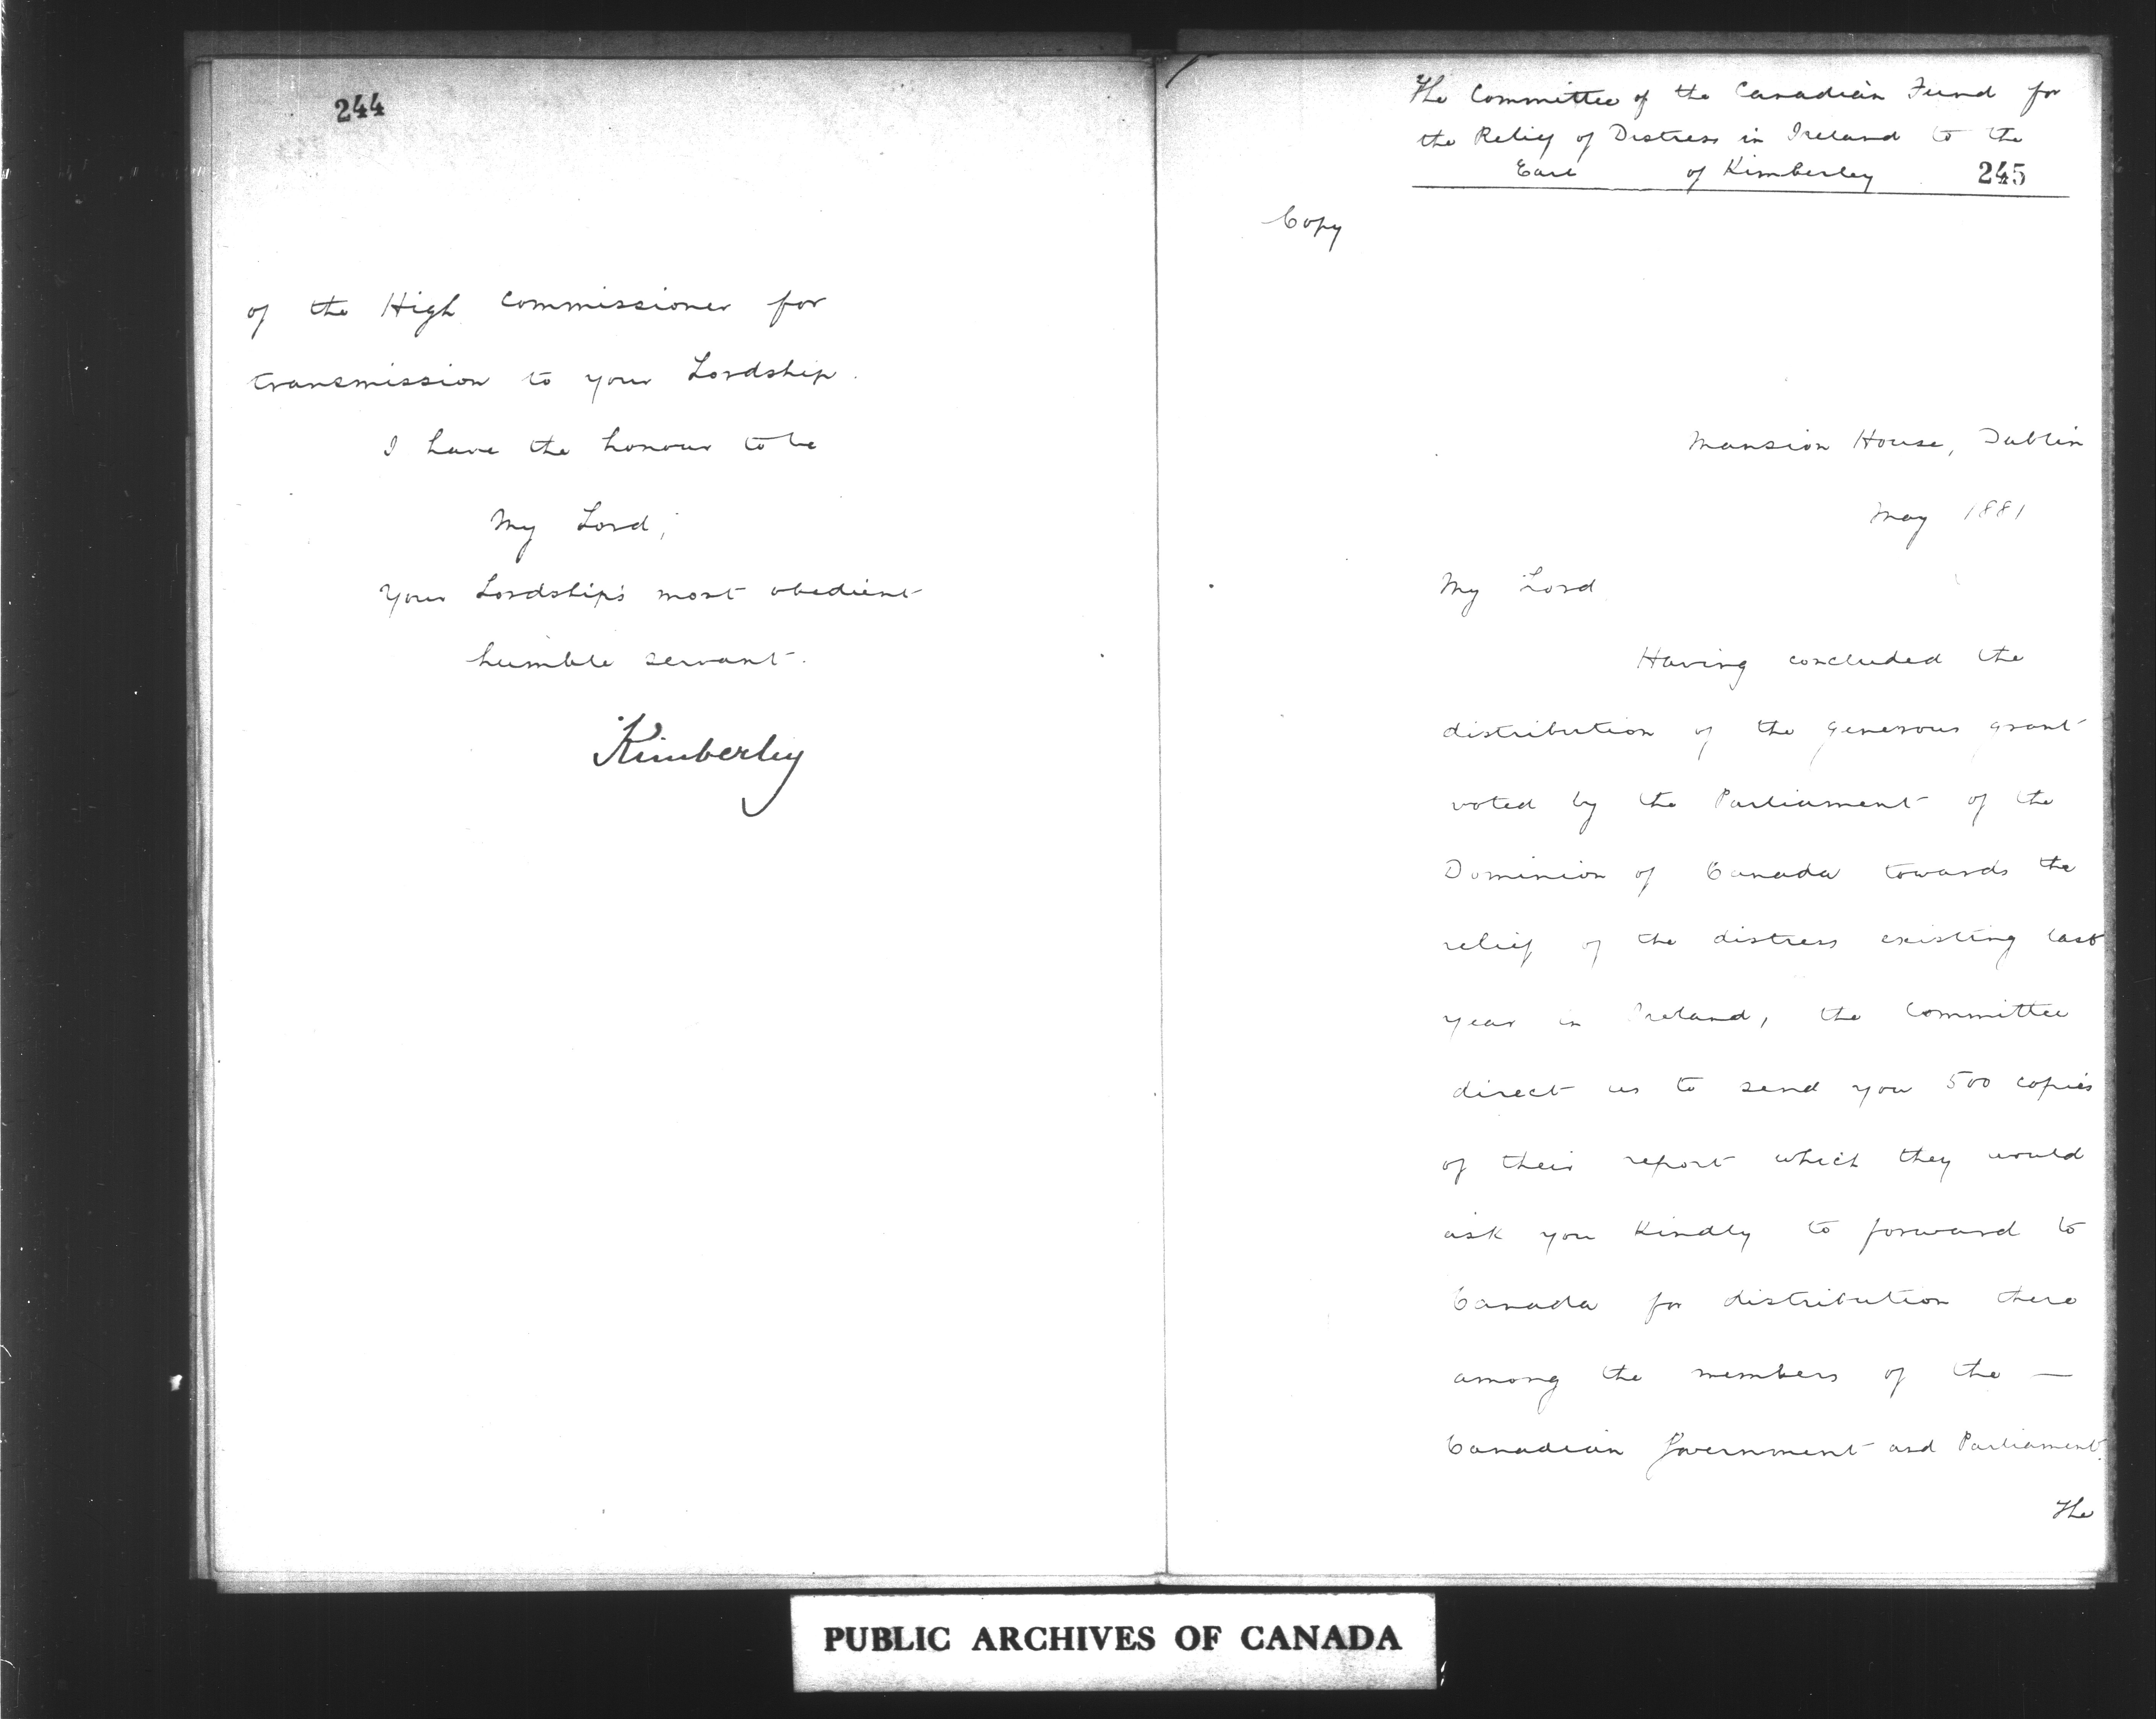 244
of the High Commissioner for
transmission to your Lordship.
I have the honour to be
My Lord,
Your Lordship's most obedient
humble servant.
Kimberley
The Committee of the Canadian Fund for
the Relief of Distress in Ireland to the
Earl of Kimberley 245
Copy
Mansion House, Dublin
May 1881
My Lord
Having concluded the
distribution of the generous grant
voted by the Parliament of the
Dominion of Canada towards the
relief of the distress existing last
year in Ireland, the Committee
direct us to send you 500 copies
of their report which they would
ask you kindly to forward to
Canada for distribution there
among the members of the —
Canadian Government and Parliament.
The
PUBLIC ARCHIVES OF CANADA